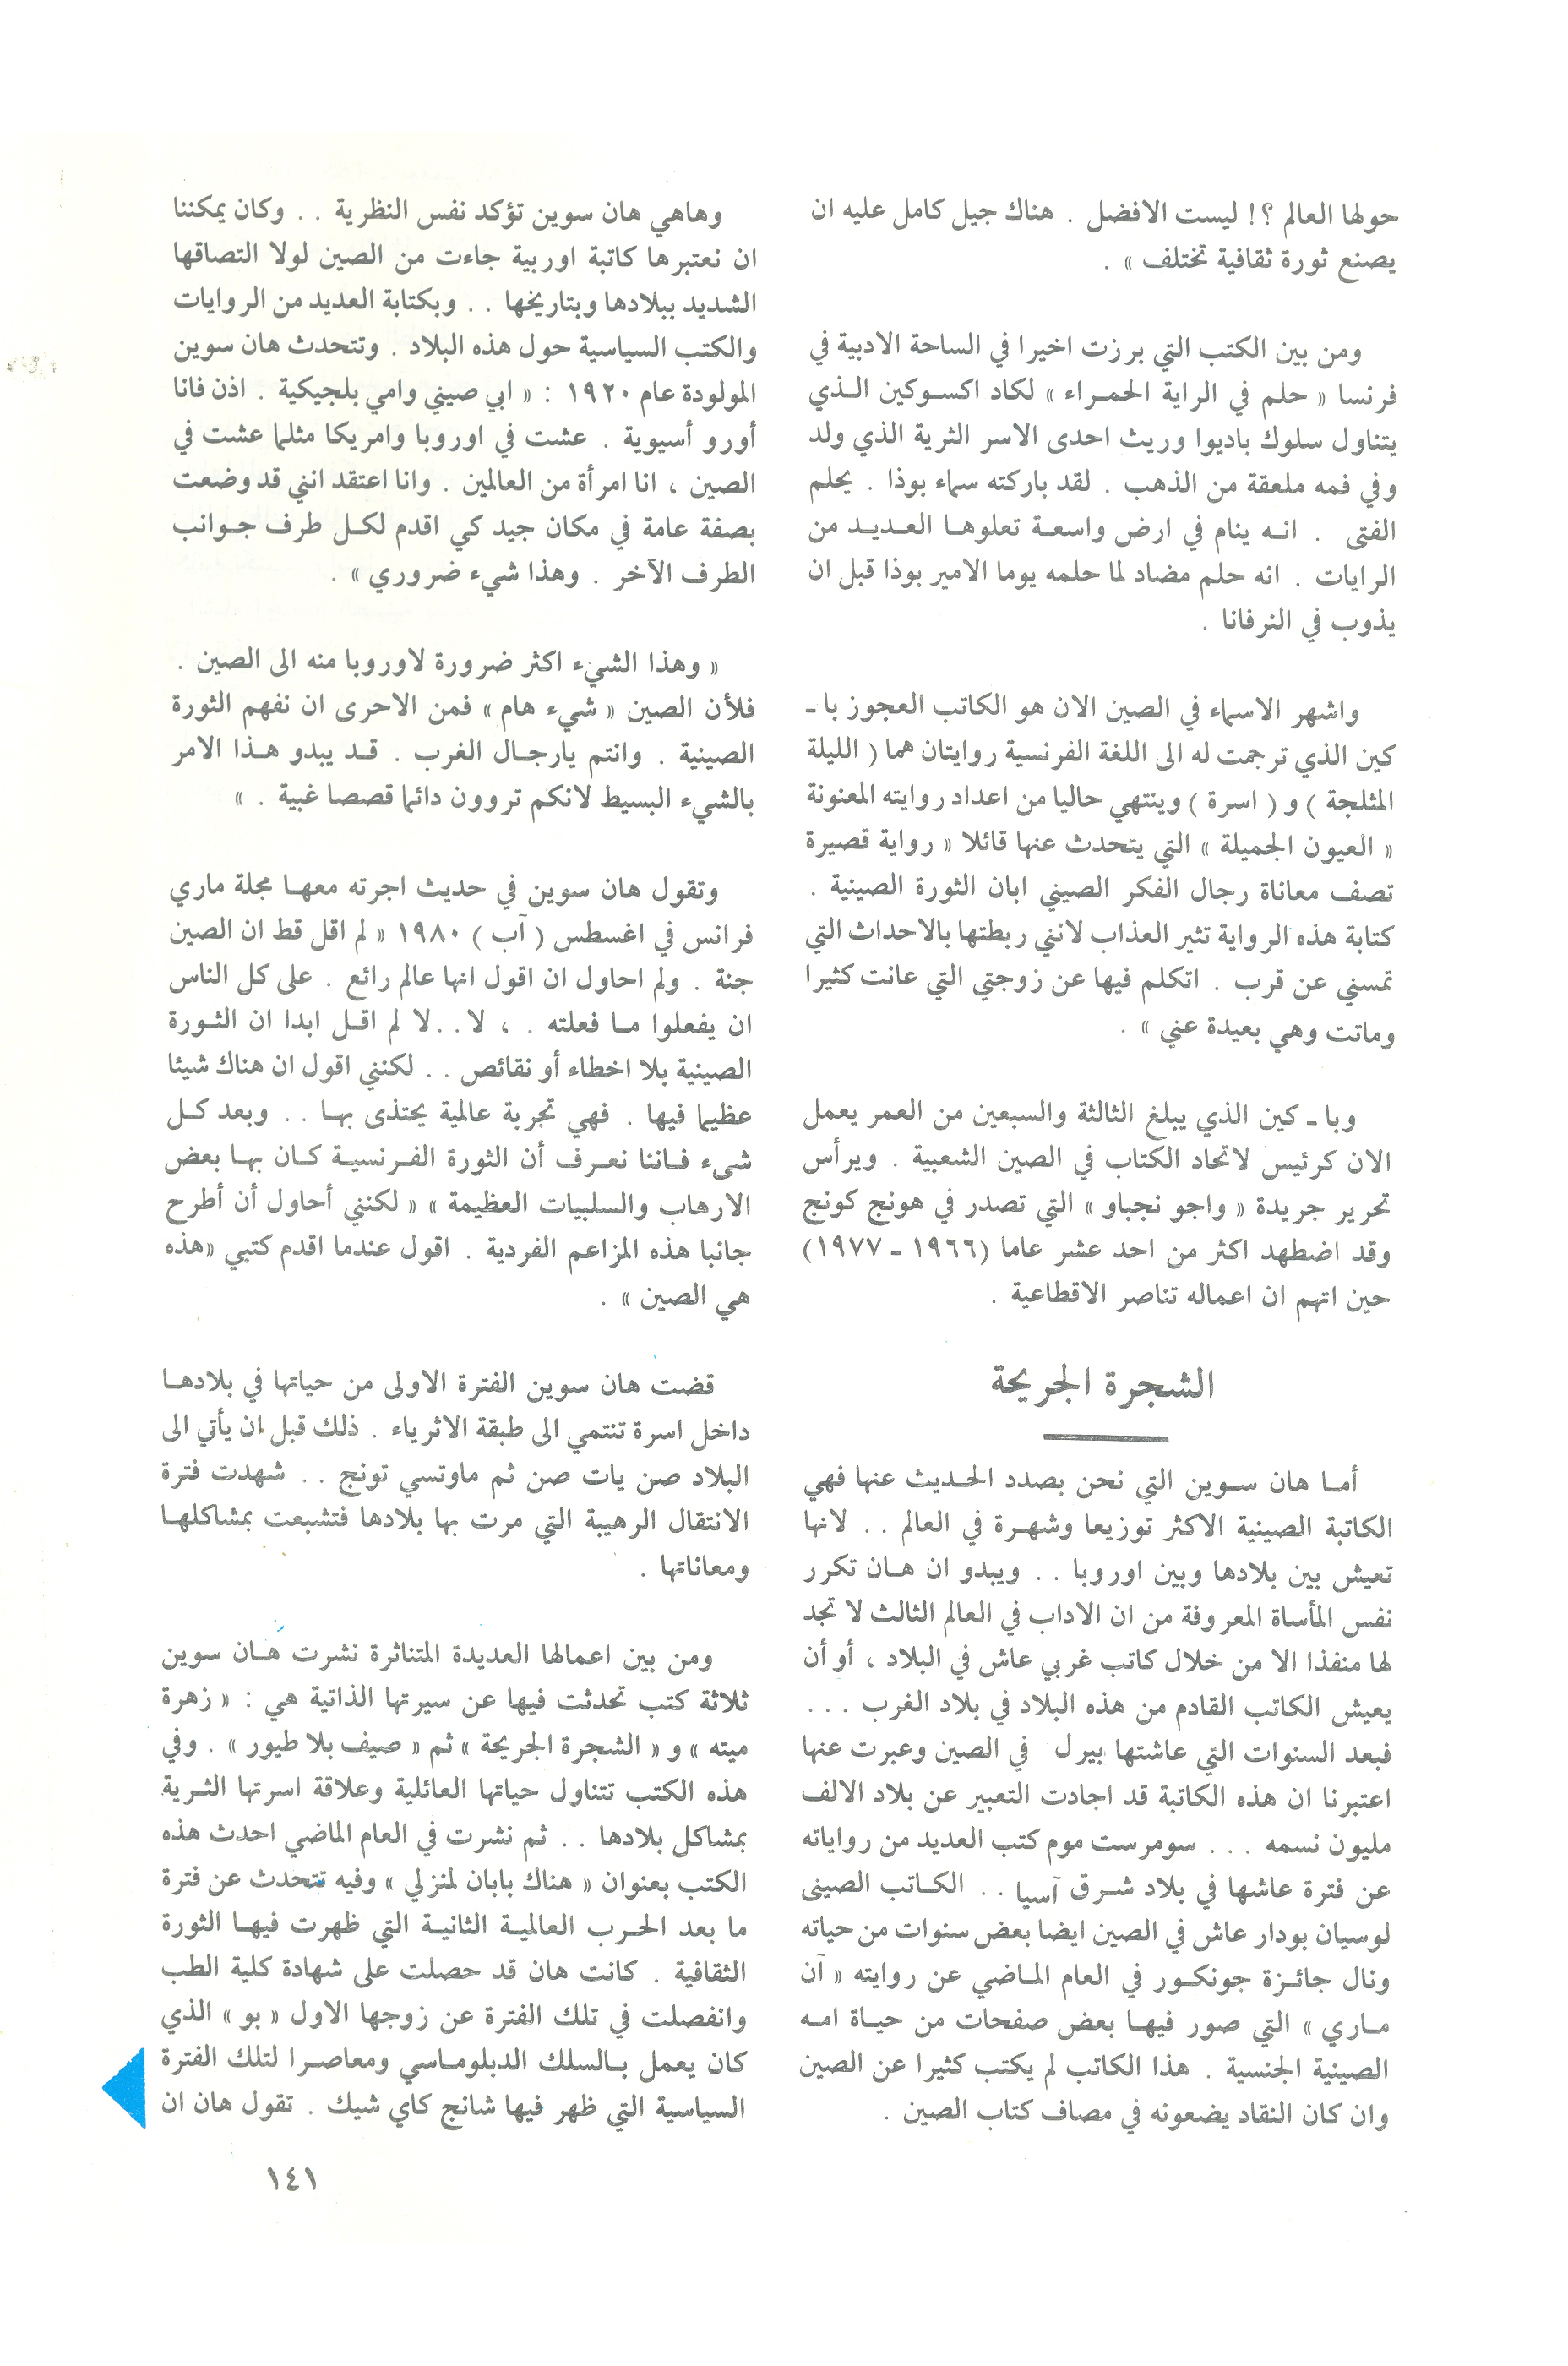 حولها العالم ؟! ليست الافضل . هناك جيل كامل عليه ان
يصنع ثورة ثقافية تختلف » .
ومن بين الكتب التي برزت اخيرا في الساحة الادبية في
فرنسا « حلم في الراية الحمـراء » لكاد اكسـوكين الـذي
يتناول سلوك باديوا وريث احدى الاسر الثرية الذي ولد
وفي فمه ملعقة من الذهب . لقد باركته سماء بوذا . يحلم
الفتى . انـه ينام في ارض واسعـة تعلوهـا العـديـد من
الرايات . انه حلم مضاد لما حلمه يوما الامير بوذا قبل ان
يذوب في النرفانا .
واشهر الاسماء في الصين الان هو الكاتب العجوز با ـ
كين الذي ترجمت له الى اللغة الفرنسية روايتان هما ( الليلة
المثلجة ) و ( اسرة ) وينتهي حاليا من اعداد روايته المعنونة
« العيون الجميلة » التي يتحدث عنها قائلا « رواية قصيرة
تصف معاناة رجال الفكر الصيني ابان الثورة الصينية .
كتابة هذه الرواية تثير العذاب لانني ربطتها بالاحداث التي
تمسني عن قرب . اتكلم فيها عن زوجتي التي عانت كثيرا
وماتت وهي بعيدة عني » .
وبا ـ كين الذي يبلغ الثالثة والسبعين من العمر يعمل
الان كرئيس لاتحاد الكتاب في الصين الشعبية . ويرأس
تحرير جريدة « واجو نجباو » التي تصدر في هونج كونج
وقد اضطهد اكثر من احد عشر عاما (١٩٦٦ ـ ١٩٧٧)
حين اتهم ان اعماله تناصر الاقطاعية .
الشجرة الجريحة
أمـا هان سـوين التي نحن بصدد الحـديث عنها فهي
الكاتبة الصينية الاكثر توزيعا وشهـرة في العالم . . لانها
تعيش بين بلادها وبين اوروبا . . ويبدو ان هـان تكرر
نفس المأساة المعروفة من ان الاداب في العالم الثالث لا تجد
لها منفذا الا من خلال كاتب غربي عاش في البلاد ، أو أن
يعيش الكاتب القادم من هذه البلاد في بلاد الغرب . . .
فبعد السنوات التي عاشتها بيرل في الصين وعبرت عنها
اعتبرنا ان هذه الكاتبة قد اجادت التعبير عن بلاد الالف
مليون نسمه . . . سومرست موم كتب العديد من رواياته
عن فترة عاشها في بلاد شـرق آسيا . . الكـاتب الصينى
لوسيان بودار عاش في الصين ايضا بعض سنوات من حياته
ونال جائـزة جونكـور في العام المـاضي عن روايته « آن
مـاري » التي صور فيهـا بعض صفحات من حيـاة امـه
الصينية الجنسية . هذا الكاتب لم يكتب كثيرا عن الصين
وان كان النقاد يضعونه في مصاف كتاب الصين .
وهاهي هان سوين تؤكد نفس النظرية . . وكان يمكننا
ان نعتبرها كاتبة اوربية جاءت من الصين لولا التصاقها
الشديد ببلادها وبتاريخها . . وبكتابة العديد من الروايات
والكتب السياسية حول هذه البلاد . وتتحدث هان سوين
المولودة عام ١٩٢٠ : « ابي صيني وامي بلجيكية . اذن فانا
أورو أسيوية . عشت في اوروبا وامريكا مثلما عشت في
الصين ، انا امرأة من العالمين . وانا اعتقد انني قد وضعت
بصفة عامة في مكان جيد كي اقدم لكـل طرف جـوانب
الطرف الآخر . وهذا شيء ضروري » .
« وهذا الشيء اكثر ضرورة لاوروبا منه الى الصين .
فلأن الصين « شيء هام » فمن الاحرى ان نفهم الثورة
الصينية . وانتم يارجـال الغرب . قـد يبدو هـذا الامر
بالشيء البسيط لانكم تروون دائما قصصا غبية . »
وتقول هان سوين في حديث اجرته معهـا مجلة ماري
فرانس في اغسطس ( آب ) ١٩٨٠ « لم اقل قط ان الصين
جنة . ولم احاول ان اقول انها عالم رائع . على كل الناس
ان يفعلوا مـا فعلته . ، لا . . لا لم اقـل ابدا ان الثـورة
الصينية بلا اخطاء أو نقائص . . لكنني اقول ان هناك شيئا
عظيما فيها . فهي تجربة عالمية يحتذى بهـا . . وبعد كـل
شىء فـاننا نعـرف أن الثورة الفـرنسيـة كـان بهـا بعض
الارهاب والسلبيات العظيمة » « لكنني أحاول أن أطرح
جانبا هذه المزاعم الفردية . اقول عندما اقدم كتبي «هذه
هي الصين » .
قضت هان سوين الفترة الاولى من حياتها في بلادهـا
داخل اسرة تنتمي الى طبقة الاثرياء . ذلك قبل ان يأتي الى
البلاد صن يات صن ثم ماوتسي تونج . . شهدت فترة
الانتقال الرهيبة التي مرت بها بلادها فتشبعت بمشاكلهـا
ومعاناتها .
ومن بين اعمالها العديدة المتناثرة نشرت هـان سوين
ثلاثة كتب تحدثت فيها عن سيرتها الذاتية هي : « زهرة
ميته » و « الشجرة الجريحة » ثم « صيف بلا طيور » . وفي
هذه الكتب تتناول حياتها العائلية وعلاقة اسرتها الثـرية
بمشاكل بلادها . . ثم نشرت في العام الماضي احدث هذه
الكتب بعنوان « هناك بابان لمنزلي » وفيه تتحدث عن فترة
ما بعد الحـرب العالميـة الثانيـة التي ظهرت فيهـا الثورة
الثقافية . كانت هان قد حصلت على شهادة كلية الطب
وانفصلت في تلك الفترة عن زوجها الاول « بو » الذي
كان يعمل بـالسلك الدبلومـاسي ومعاصـرا لتلك الفترة
السياسية التي ظهر فيها شانج كاي شيك . تقول هان ان
١٤١